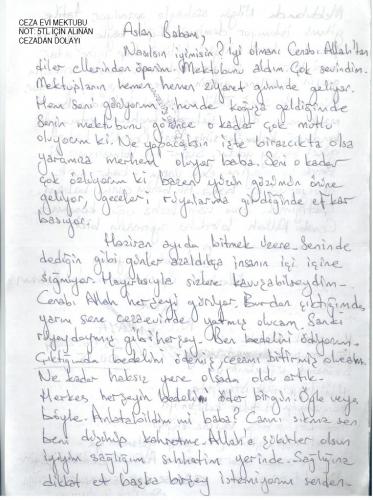 CEZA EVİ MEKTUBU
NOT: 5TL İÇİN ALINAN
CEZADAN DOLAYI
Aslan Babam,
Nasılsın iyimisin? İyi olmanı Cenabı Allah'tan
diler ellerinden öperim. Mektubunu aldım. Çok sevindim.
Mektupların hemen hemen ziyaret gününde geliyor.
Hem seni görüyorum hemde koğuşa geldiğimde
Senin mektubunu görünce o kadar çok mutlu
oluyorum ki. Ne yapacaksın işte birazcıkta olsa
yaramıza merhem oluyor baba. Seni o kadar
çok özlüyorum ki bazen yüzün gözümün önüne
geliyor, geceleri rüyalarıma girdiğinde efkar
basıyor.
Haziran ayıda bitmek üzere. Seninde
dediğin gibi günler azaldıkça insanın içi içine
sığmıyor. Hayırlısıyla sizlere kavuşabilseydim.
Cenabı Allah herşeyi görüyor. Burdan çıktığımda
yarım sene cezaevinde yatmış olucam. Sanki
rüyaydaymış gibi herşey. Ben bedelini ödüyorum.
Çıktığımda bedelini ödemiş, cezamı bitirmiş olucam.
Ne kadar haksız yere olsada oldu artık.
Herkes herşeyin bedelini öder birgün. Öyle veya
böyle. Anlatabildim mi baba? Canını sıkma sen
beni düşünüp kahretme. Allah'a şükürler olsun
iyiyim sağlığım sıhhatim yerinde. Sağlığına
dikkat et başka birşey istemiyorum senden.